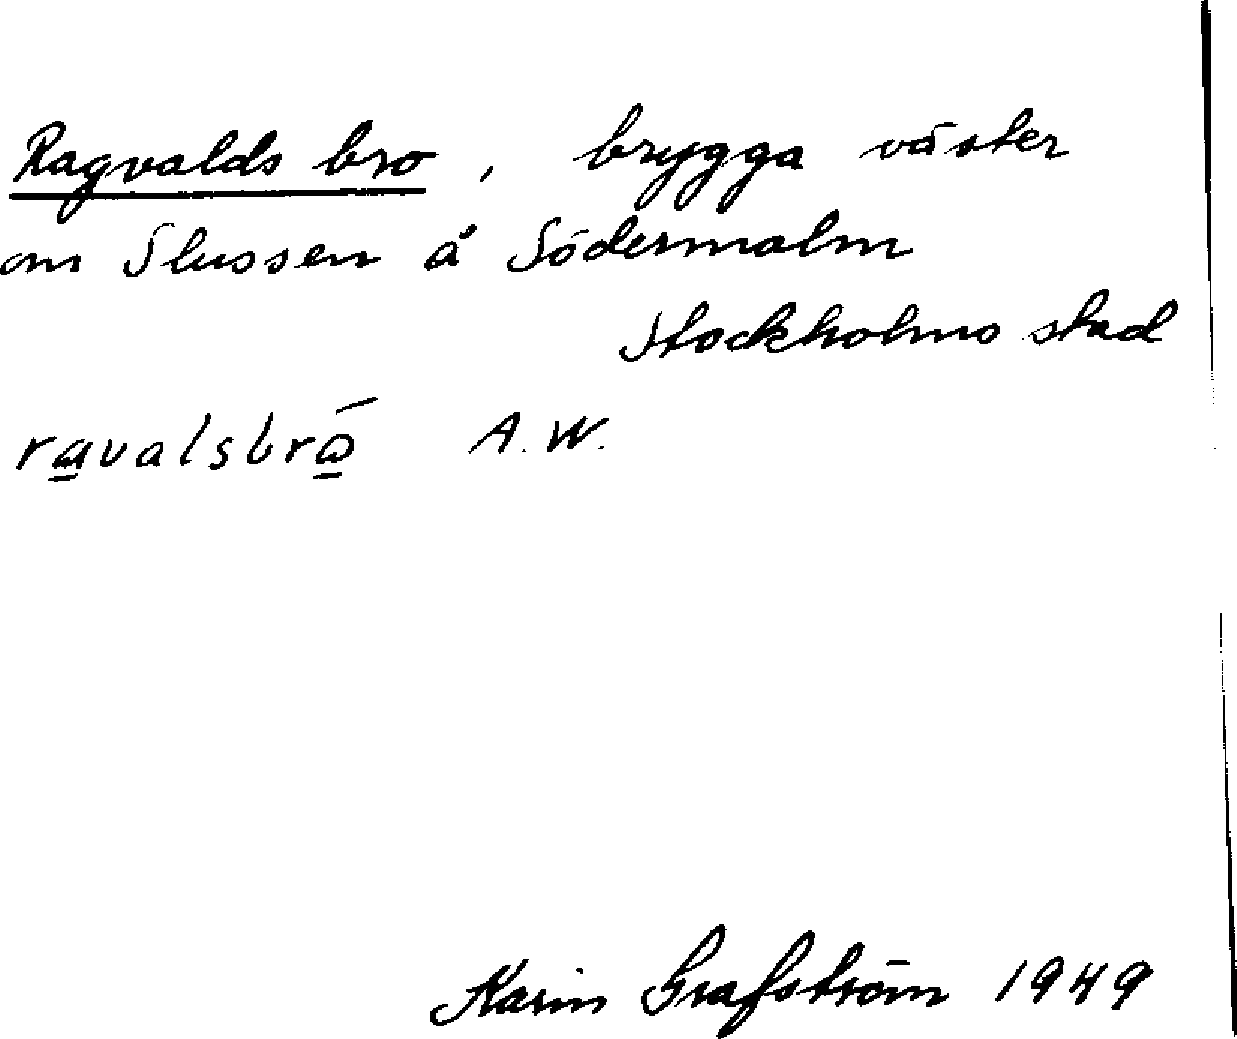 Ragvalds bro, brygga väster
om Slussen å Södermalm
Stockholms stad
ravalsbro A.W.
Karin Grafström 1949